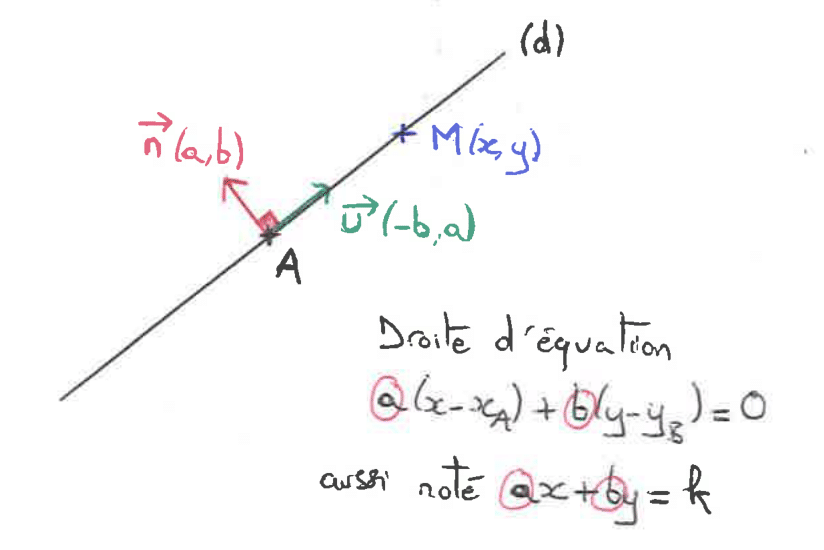 (d)
n⃗(a,b)
M(x,y)
u⃗(-b,a)
A
Droite d'équation
a(x-x_A) + b(y-y_B) = 0
aussi noté ax+by = k